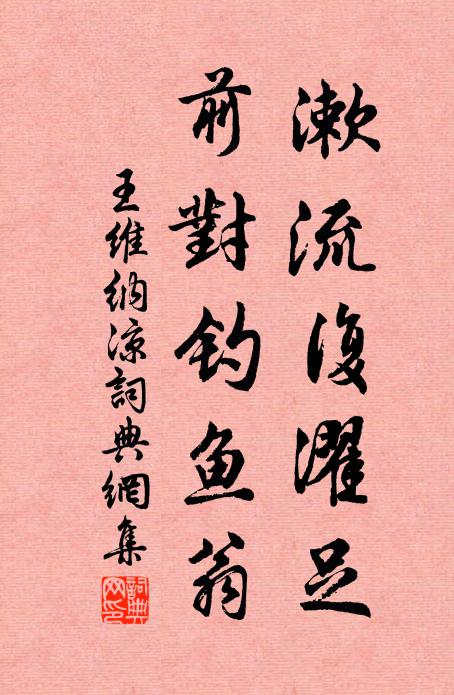 漱流復濯足
前對钓鱼翁
王維納涼詞典網集
詞典
网印